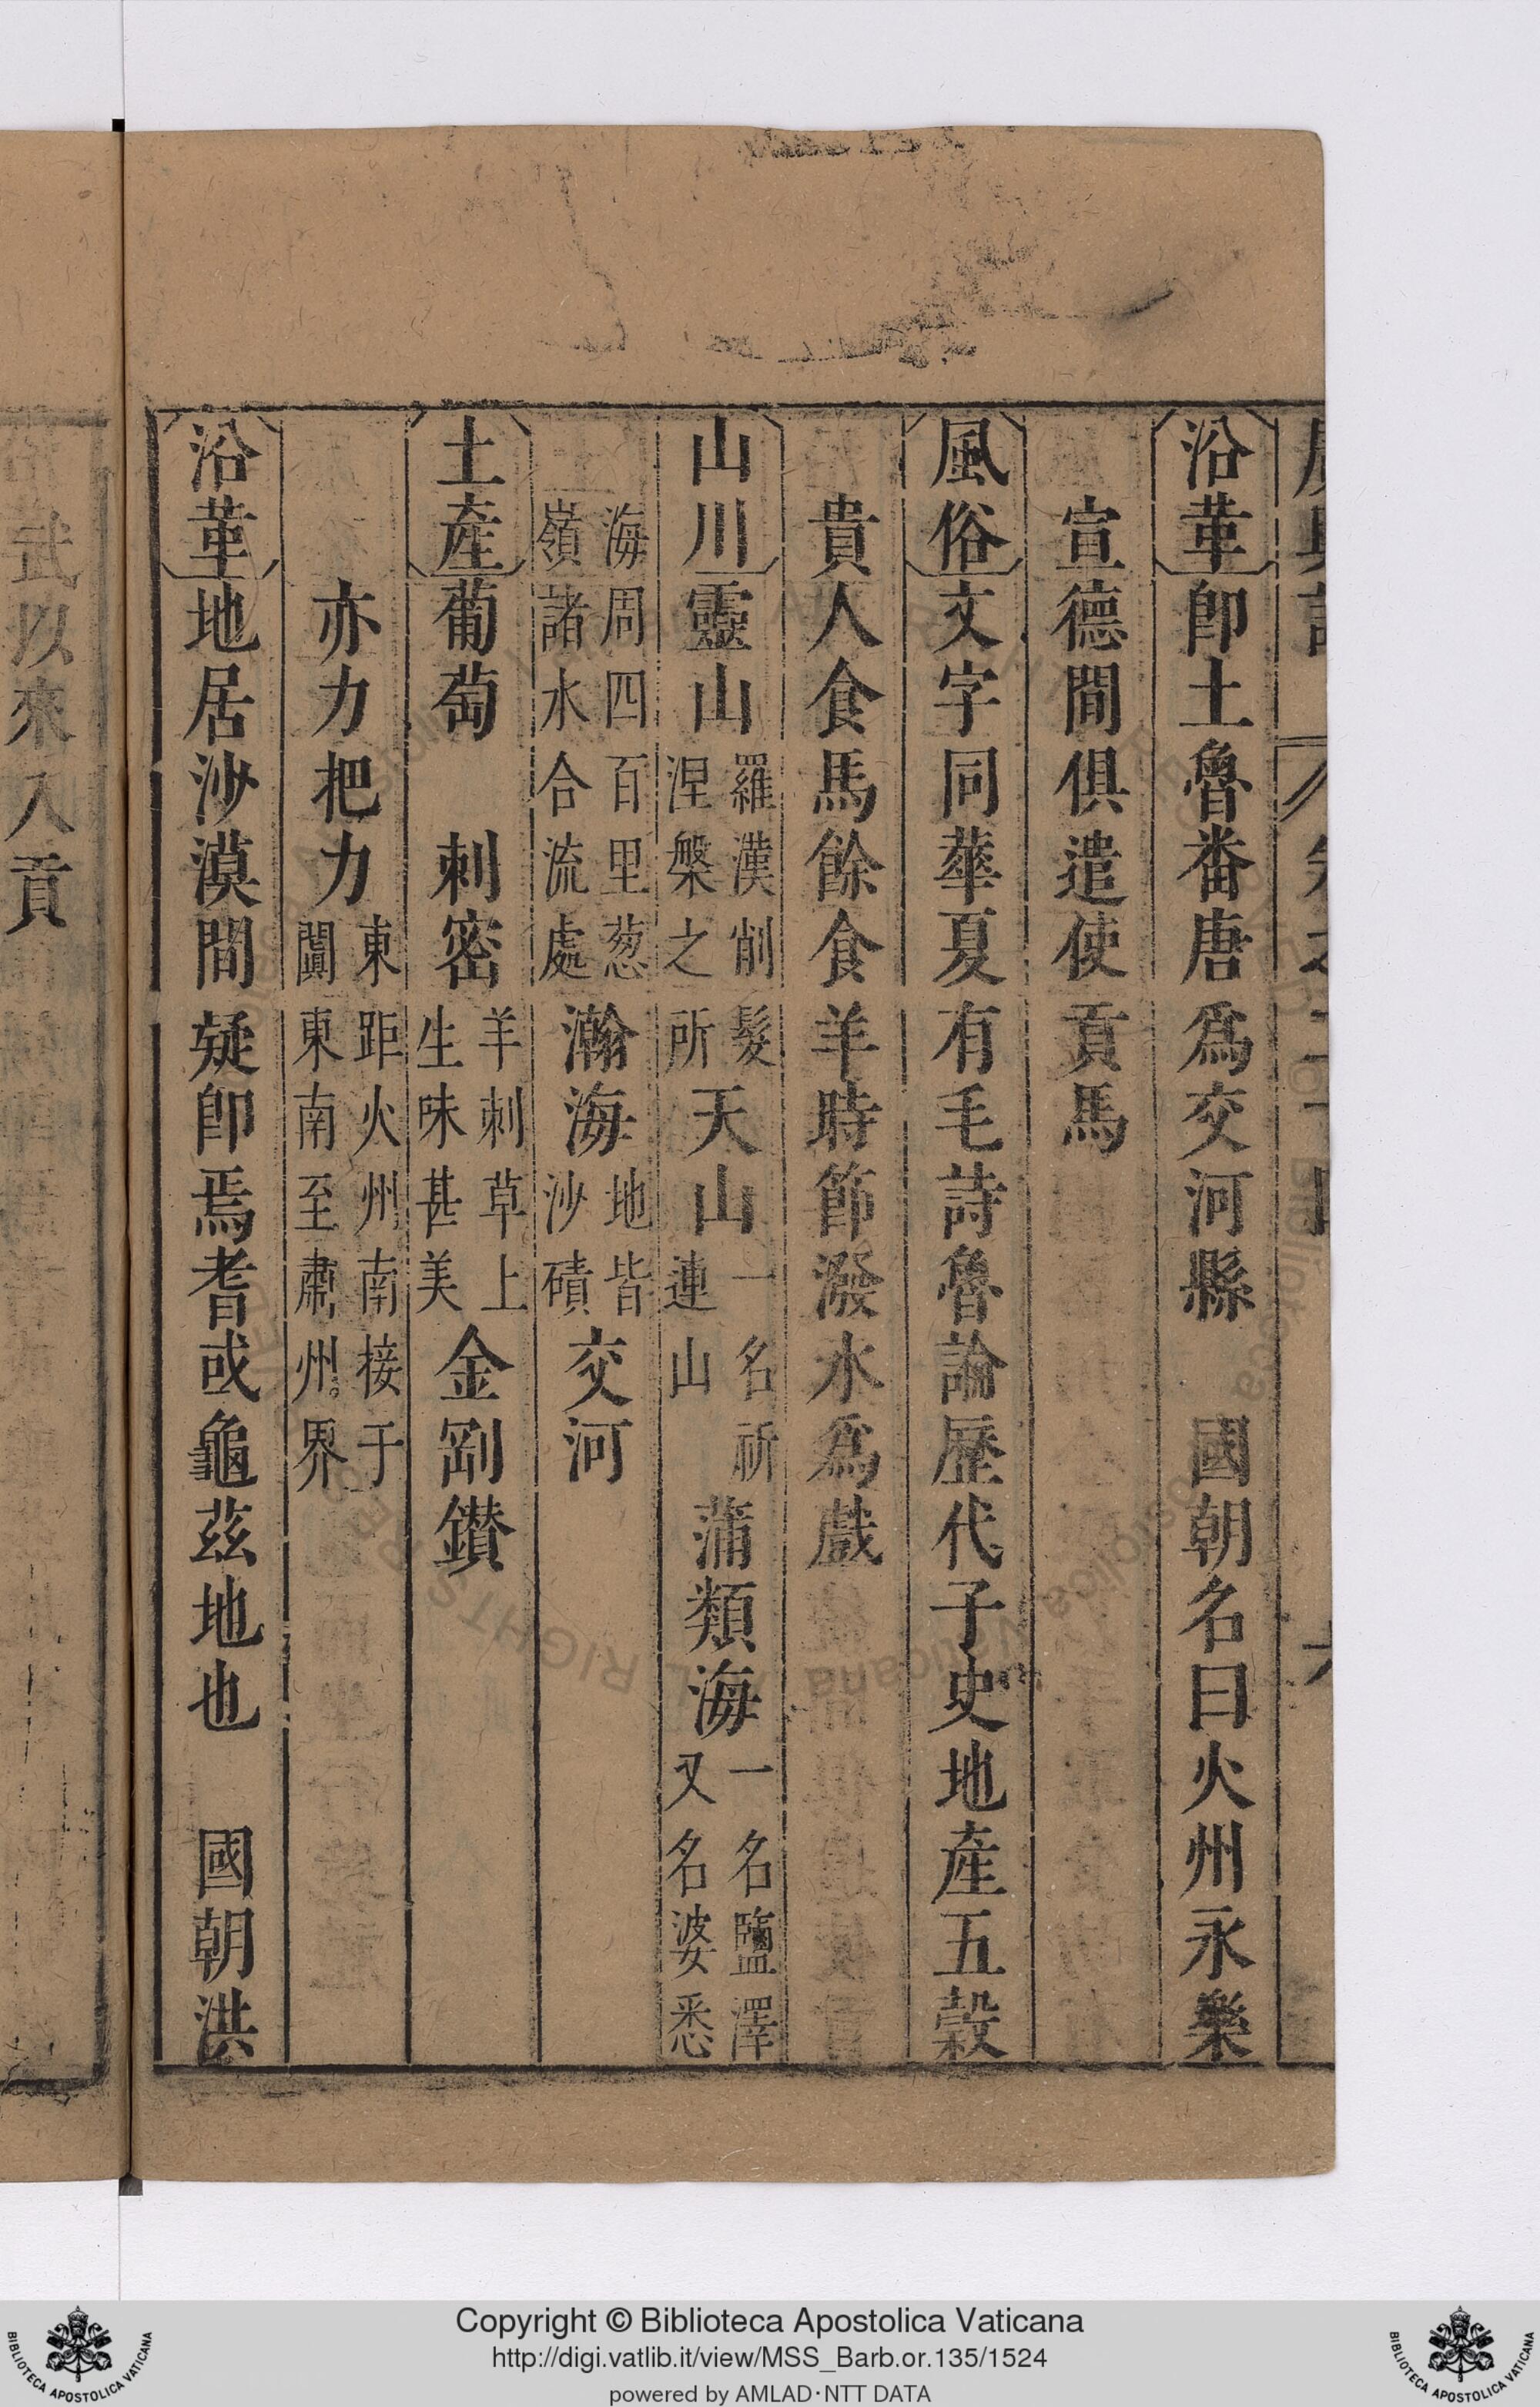 沿革卽土魯番唐爲交河縣　國朝名曰火州永樂
宣德間俱遣使貢馬
風俗文字同華夏有毛詩魯論歷代子史地產五穀
貴人食馬餘食羊時節潑水爲戲
山川靈山羅漢削髮涅槃之所天山一名祈連山蒲類海一名鹽澤又名婆悉
海周四百里葱嶺諸水合流處瀚海地皆沙磧交河
土產葡萄　刺密羊刺草上生味甚美金剛鑚
亦力把力東距火州南接于闐東南至肅州界
沿革地居沙漠間疑卽焉耆或龜茲地也　國朝洪
武以來入貢
Copyright © Biblioteca Apostolica Vaticana
http://digi.vatlib.it/view/MSS_Barb.or.135/1524
powered by AMLAD·NTT DATA
BIBLIOTECA APOSTOLICA VATICANA
BIBLIOTECA APOSTOLICA VATICANA